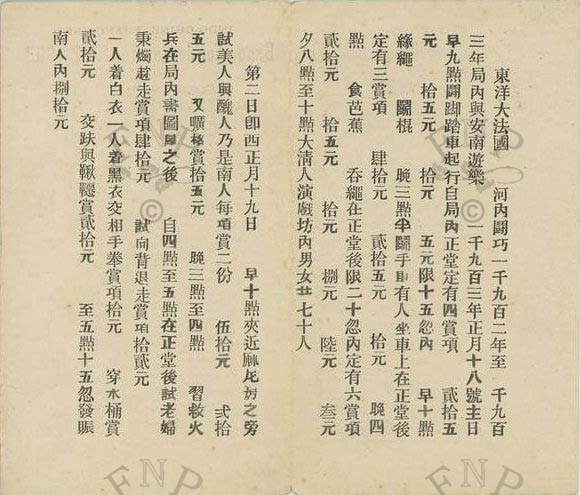 東洋大法國 河內鬪巧一千九百二年至 千九百
三年局內與安南遊樂 一千九百三年正月十八號主日
早九點鬪脚踏車起行自局內正堂定有四賞項 貳拾五
元 拾五元 拾元 五元限十五忽內 早十點
緣繩 鬪棍 晚三點半鬪手車有人坐車上在正堂後
定有三賞項 肆拾元 貳拾五元 拾元 晚四
點 食芭蕉 吞繩在正堂後限二十忽內定有六賞項
貳拾元 拾五元 拾元 捌元 陸元 叁元
夕八點至十點大清人演戲坊內男女共七十人
第二日卽西正月十九日 早十點夾近 之旁
試美人與醜人乃是南人每項賞二份 伍拾元 弍拾
五元 又嚝 賞拾五元 晚三點至四點 習救火
兵在局內畵圖 之後 自四點至五點在正堂後試老婦
秉燭趂走賞項肆拾元 試向背退走賞項拾貳元
一人着白衣一人着黑衣交相手拳賞項拾元 穿水桶賞
貳拾元 交趺與鞦韆賞貳拾元 至五點十五忽發賑
南人內捌拾元
FNP
©
FNP
©
FNP
FNP